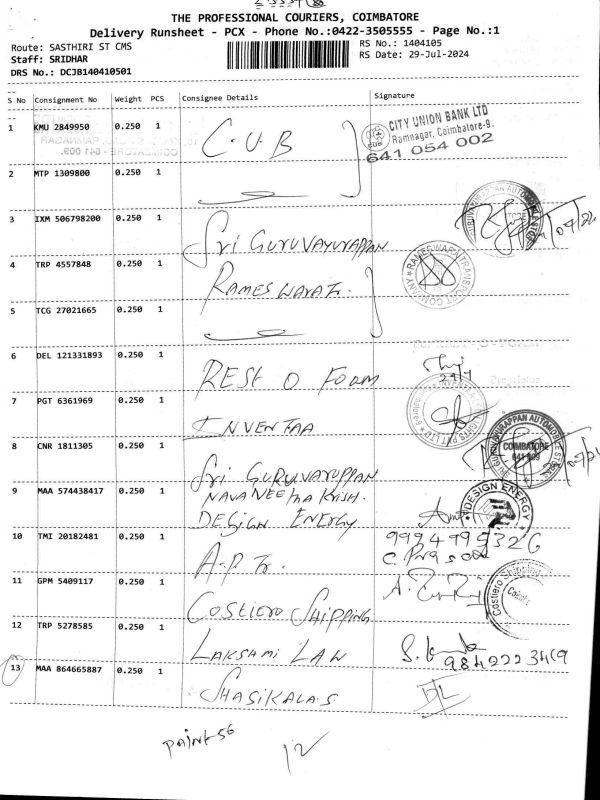 THE PROFESSIONAL COURIERS, COIMBATORE
Delivery Runsheet - PCX - Phone No.:0422-3505555 - Page No.:1
Route: SASTHIRI ST CMS
RS No.: 1404105
Staff: SRIDHAR
RS Date: 29-Jul-2024
DRS No.: DCJB140410501
S No Consignment No Weight PCS Consignee Details Signature
1 KMU 2849950 0.250 1 C.U.B
CITY UNION BANK LTD
Ramnagar, Coimbatore-9.
641 054 002
2 MTP 1309800 0.250 1
3 IXM 506798200 0.250 1 Sri GURUVAYURAPPAN
4 TRP 4557848 0.250 1 RAMESWARA Tr.
RAMESWARA TRANSPORT COMPANY
5 TCG 27021665 0.250 1
6 DEL 121331893 0.250 1 REST O FOAM
29/7
7 PGT 6361969 0.250 1 INVENTAA
8 CNR 1811305 0.250 1 Sri GURUVARUPPAN
COIMBATORE
641 009
9 MAA 574438417 0.250 1 NAVANEETHA KRISH.
DESIGN ENERGY
DESIGN ENERGY
10 TMI 20182481 0.250 1 A.P Tr.
9994799326
11 GPM 5409117 0.250 1 COSTIERO SHIPPING
Costiero Shipping
12 TRP 5278585 0.250 1 LAKSHMI LAW
9842223419
13 MAA 864665887 0.250 1 SHASIKALA.S
12